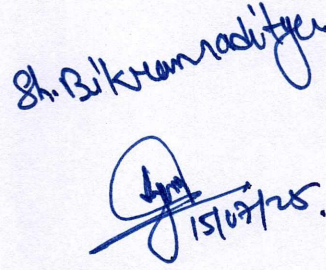 Sh. Bikramraditya
15/07/25.